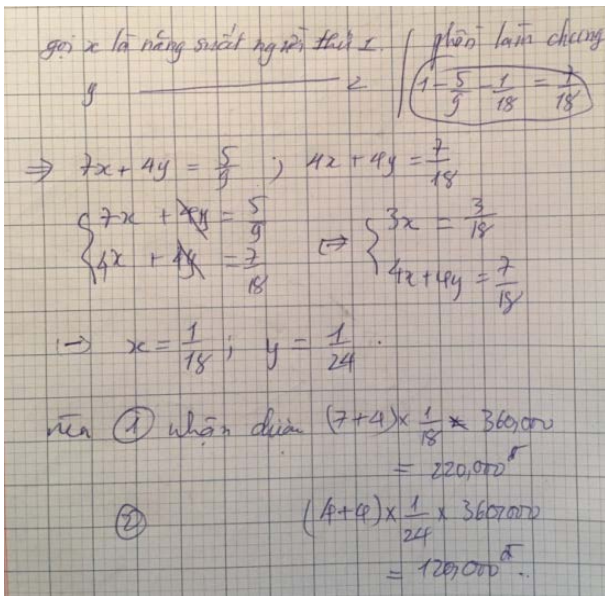 gọi x là năng suất người thứ 1.
y ——— 2
phần làm chung
1 - 5/9 - 1/18 = 7/18
⇒ 7x + 4y = 5/9 ; 4x + 4y = 7/18
{ 7x + 4y = 5/9
4x + 4y = 7/18
⇒ { 3x = 3/18
4x + 4y = 7/18
→ x = 1/18 ; y = 1/24 .
nên ① nhận được (7+4) × 1/18 × 360,000
= 220,000đ
② (4+4) × 1/24 × 360,000
= 120,000đ..